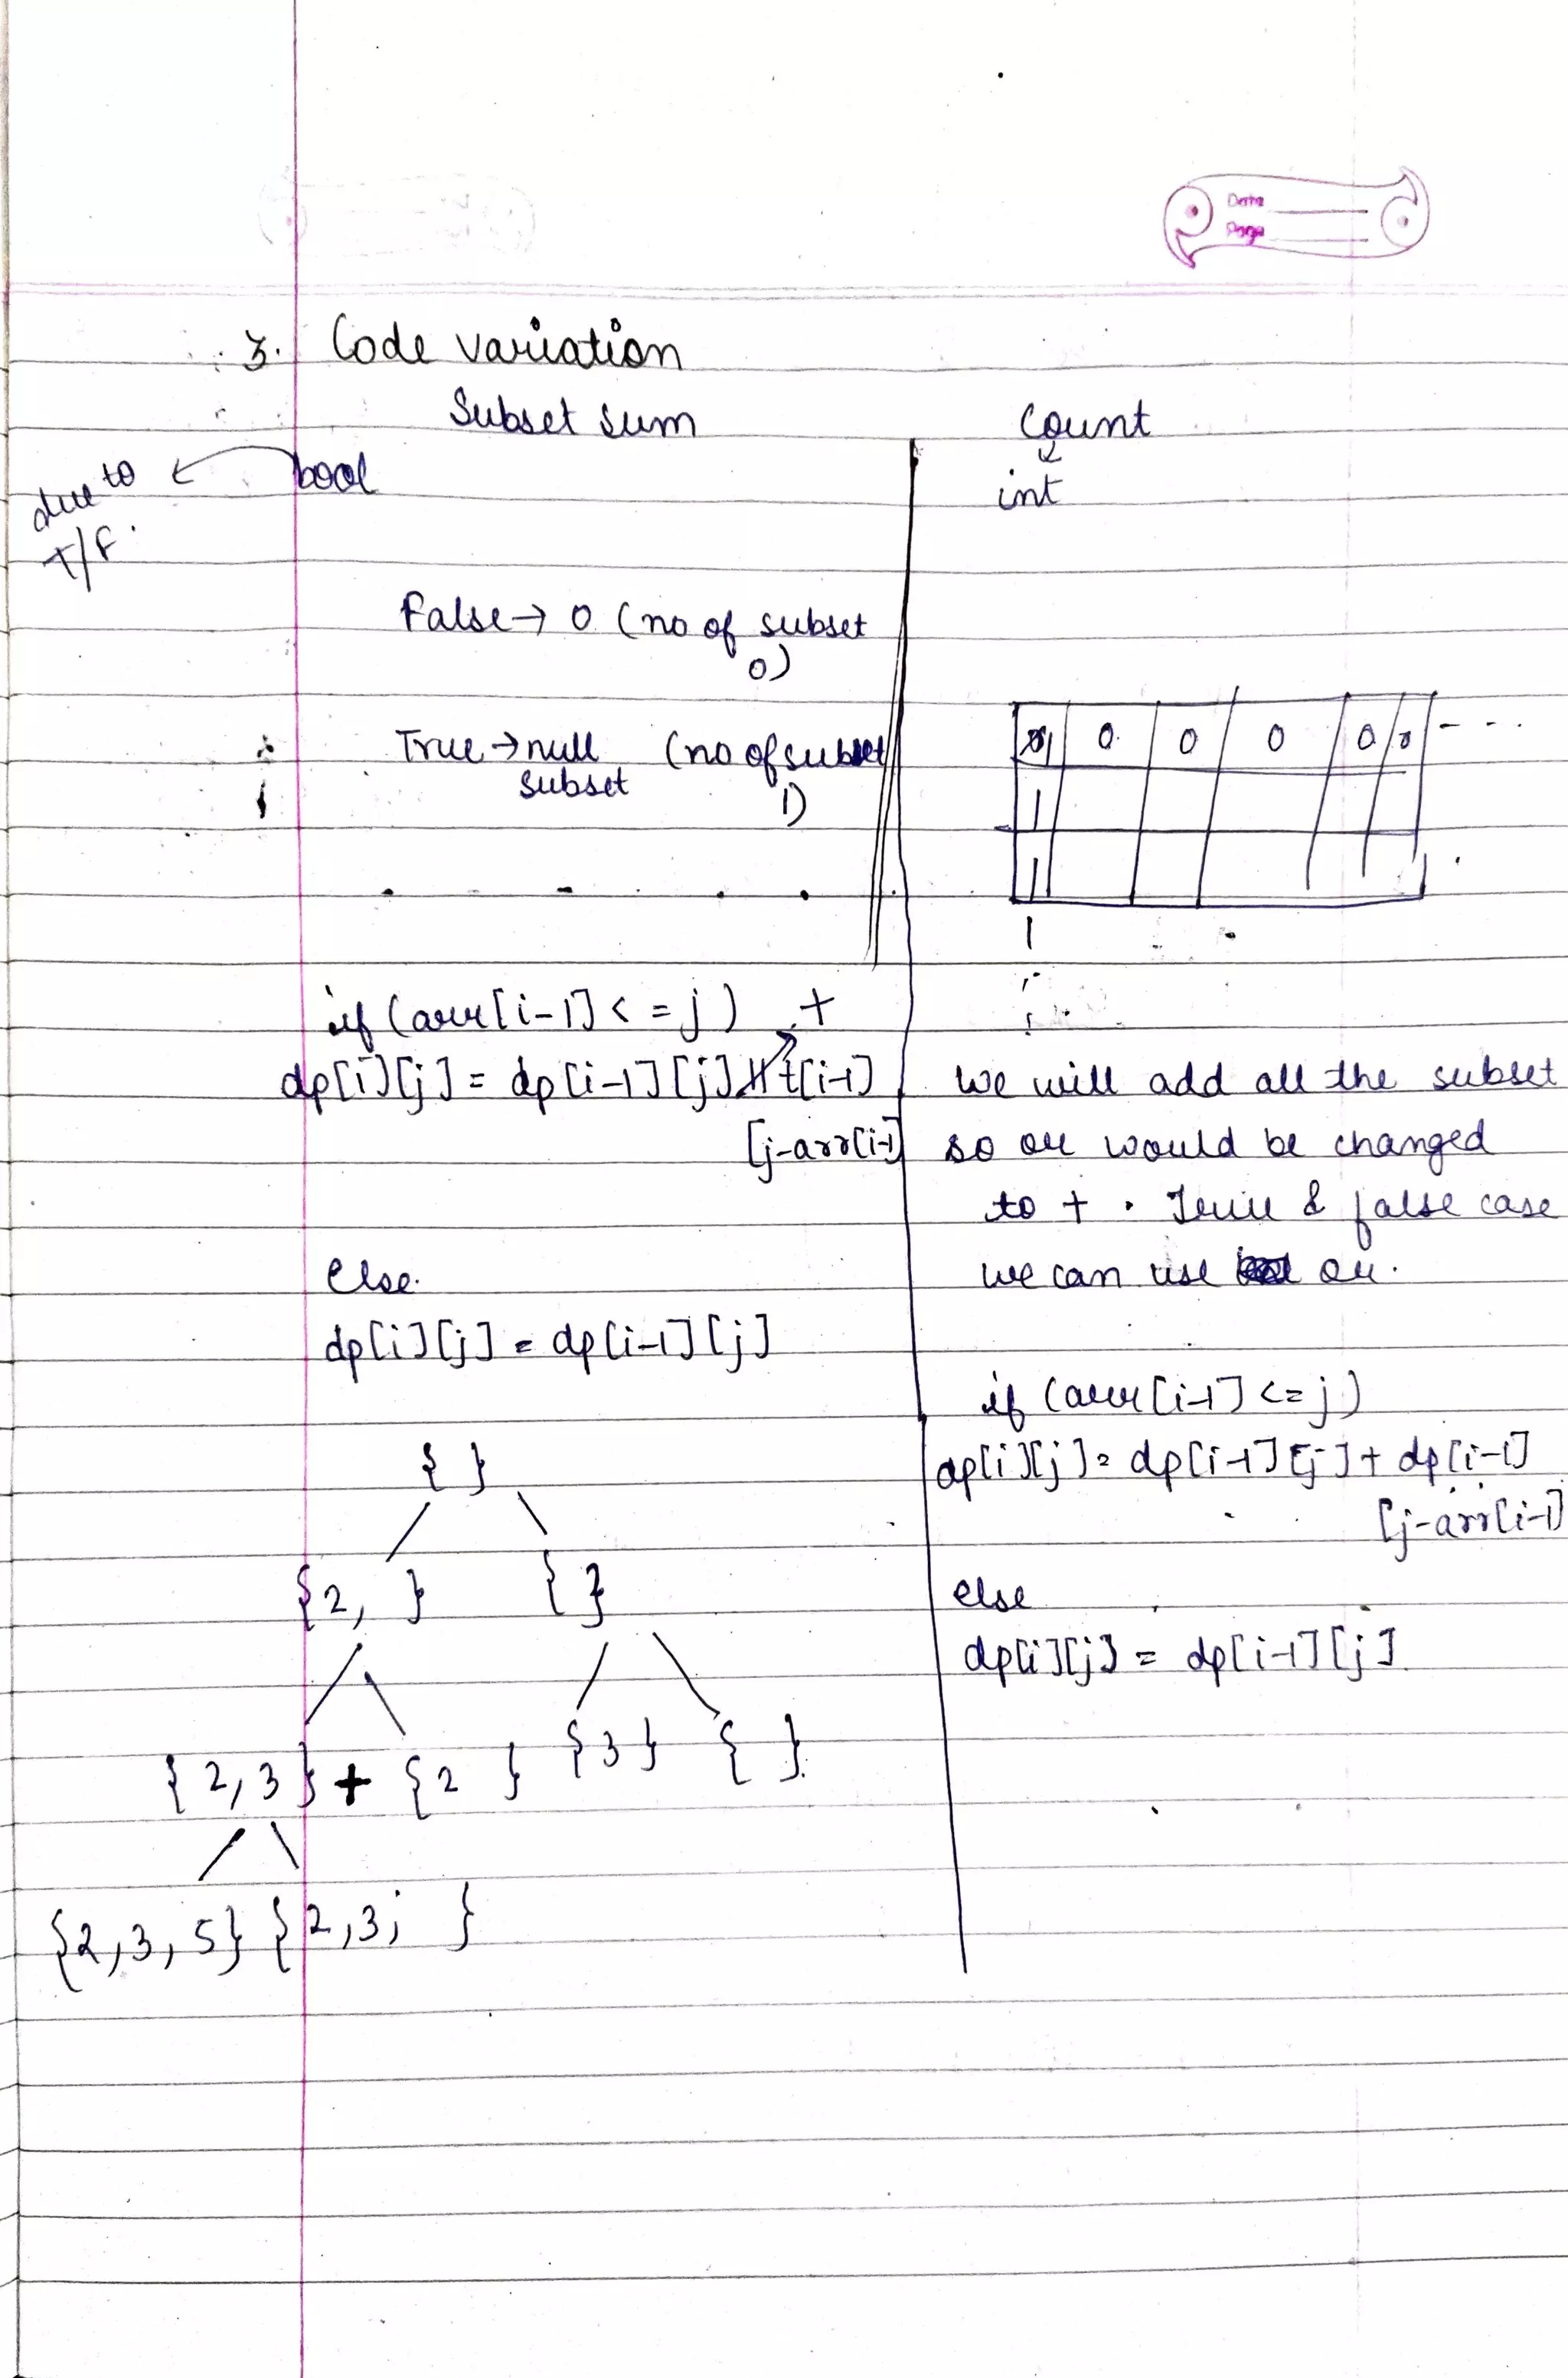 Date
Page
3. Code variation
Subset sum
bool
due to
T/F.
False → 0 (no of subset
0)
True → null (no of subset
subset 1)
if (arr[i-1] <= j) +
dp[i][j] = dp[i-1][j] || t[i-1]
[j-arr[i-1]
else
dp[i][j] = dp[i-1][j]
{ }
{2, } { }
{2,3} + {2 } {3} { }
{2,3,5} {2,3, }
Count
int
1 0 0 0 0 0 - - -
1
1
1
we will add all the subset
so or would be changed
to + . True & false case
we can use or.
if (arr[i-1] <= j)
dp[i][j] = dp[i-1][j] + dp[i-1]
[j-arr[i-1]
else
dp[i][j] = dp[i-1][j]